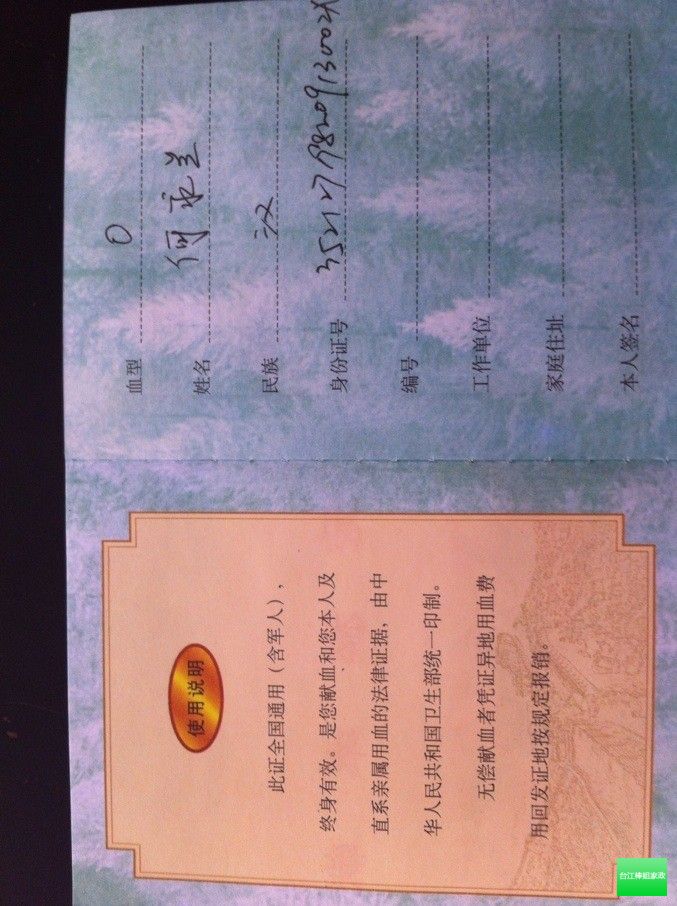 使用说明
此证全国通用（含军人），
终身有效。是您献血和您本人及
直系亲属用血的法律证据，由中
华人民共和国卫生部统一印制。
无偿献血者凭证异地用血费
用回发证地按规定报销。
血型 O
姓名 何 兰
民族 汉
身份证号
编号
工作单位
家庭住址
本人签名
台江棒姐家政